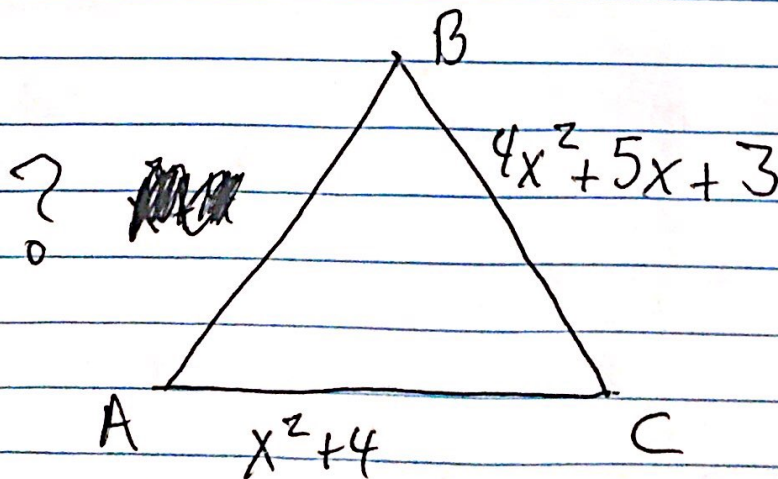 B
4x²+5x+3
?
A
x²+4
C